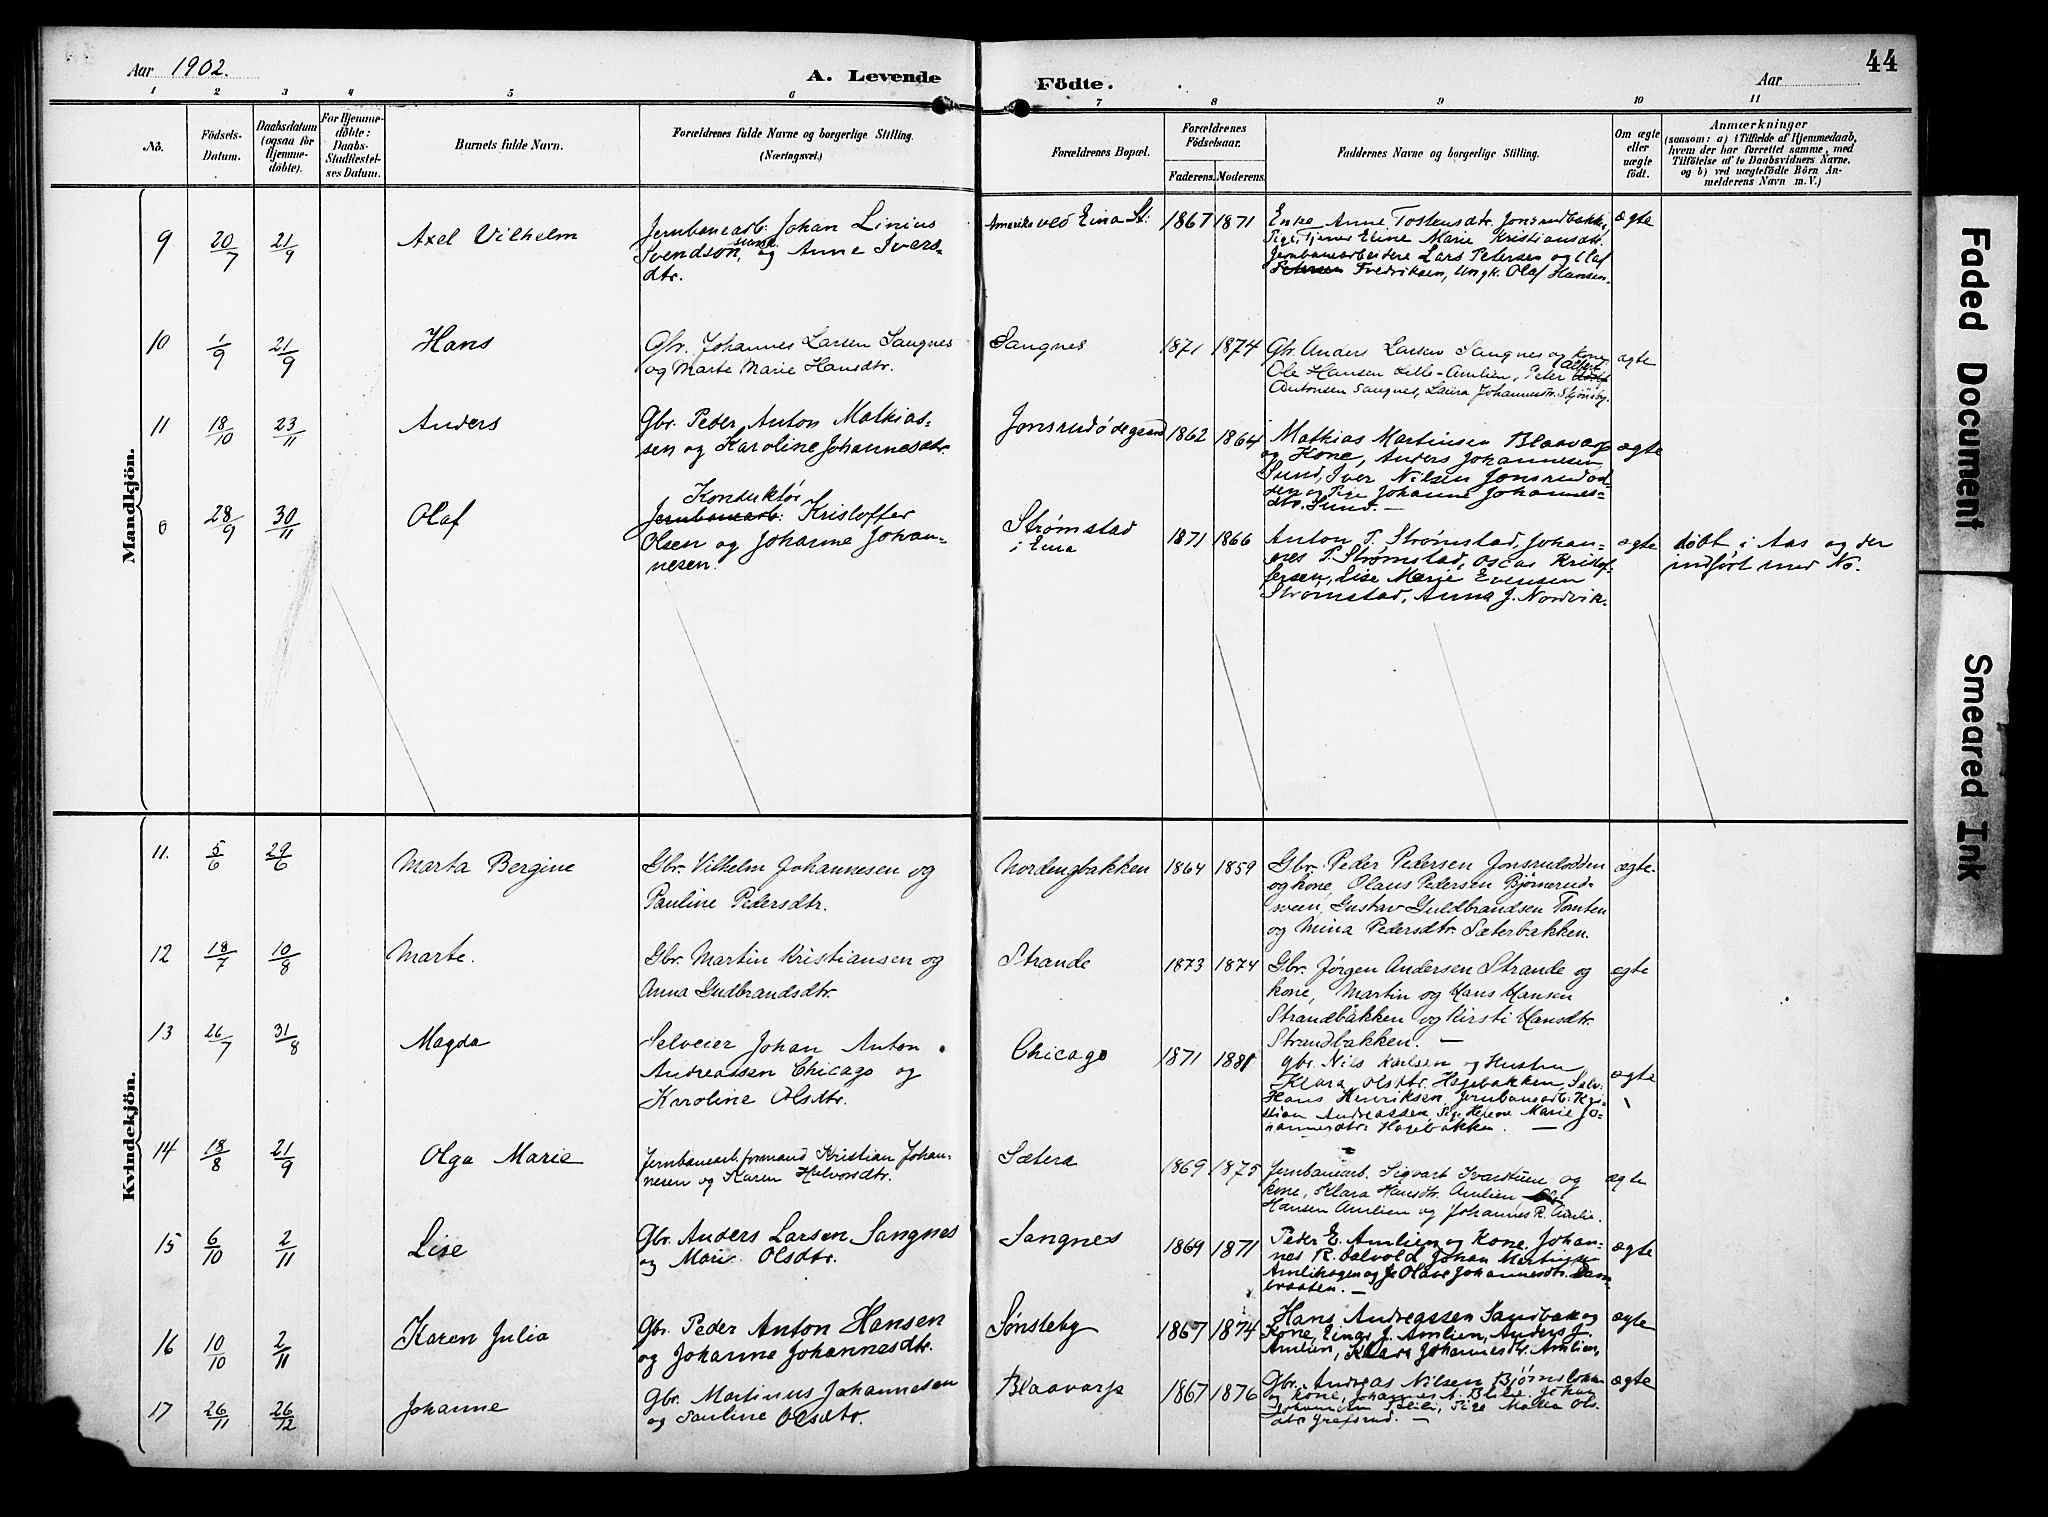 Aar 1902.
A. Levende
Födte.
Aar
44
1 2 3 4 5 6 7 8 9 10 11
No.
Födsels-
Datum.
Daabsdatum
(ogsaa for
Hjemme-
döbte).
For Hjemme-
döbte:
Daabs-
Stadfæstel-
ses Datum.
Barnets fulde Navn.
Forældrenes fulde Navne og borgerlige Stilling.
(Næringsvei.)
Forældrenes Bopæl.
Forældrenes
Födselsaar.
Faderens.
Moderens.
Faddernes Navne og borgerlige Stilling.
Om ægte
eller
uægte
födt.
Anmærkninger
(saasom: a) i Tilfælde af Hjemmedaab,
hvem der har forrettet samme, med
Tilföielse af to Daabsvidners Navne,
og b) ved uægtefödte Börn An-
melderens Navn m. V.)
Mandkjön.
9
20/7
21/9
Axel Vilhelm
Jernbanearb. Johan Linius
Svendson, og Anne Ivers-
dtr.
Amerika ved Eina St.
1867
1871
Enke Anne Tostensdtr. Jonsrudbakke,
Pige, Tjener Eline Marie Kristiansdtr.
Jernbanearbeidere Lars Petersen og Olaf
Petersen Fredriksen, Ungk. Olaf Hansen.
ægte
10
1/9
21/9
Hans
Gbr. Johannes Larsen Sangnes
og Marte Marie Hansdtr.
Sangnes
1871
1874
Gbr. Anders Larsen Sangnes og kone
Ole Hansen Lille-Amlien, Peter
Antonsen Sangnes, Laura Johannesdtr.
ægte
11
18/10
23/11
Anders
Gbr. Peder Anton Mathias-
sen og Karoline Johannesdtr.
Jonsrudødegaard
1862
1864
Mathias Martinsen Blaavarp
og Kone, Anders Johannesen
Sund, Iver Nilsen Jonsrudod-
den og Pige Johanne Johannes-
dtr. Sund. —
ægte
0
28/9
30/11
Olaf
Konduktör
Jernbanearb. Kristoffer
Olsen og Johanne Johan-
nesen.
Strømstad
i Eina
1871
1866
Anton P. Strømstad, Johan-
nes P. Strømstad, Oscar Kristof-
fersen, Lise Marie Evensen
Strømstad, Anna J. Nordvik.
ægte
döbt i Aas og der
indfört med No.
Kvindekjön.
11.
5/6
29/6
Marta Bergine
Gbr. Vilhelm Johannesen og
Pauline Pedersdtr.
Nordengbakken
1864
1859
Gbr. Peder Pedersen Jonsrudodden
og kone, Olaus Pedersen Bjørnerud-
sveen, Gustav Guldbrandsen Tomten
og Mina Pedersdtr. Sæterbakken.
ægte.
12
18/7
10/8
Marte.
Gbr. Martin Kristiansen og
Anna Gudbrandsdtr.
Strande
1873
1874
Gbr. Jørgen Andersen Strande og
kone, Martin og Hans Hansen
Strandbakken og Kirsti Hansdtr.
Strandbakken. —
ægte
13
26/7
31/8
Magda
Selveier Johan Anton
Andreassen Chicago og
Karoline Olsdtr.
Chicago
1871
1881
Gbr. Nils Karlsen og Hustru
Klara Olsdtr. Hagebakken, Selv.
Hans Henriksen, Jernbanearb. Kri-
stian Andreassen, Pige Helene Marie Jo-
hannesdtr. Hagebakken. —
ægte
14
18/8
21/9
Olga Marie
Jernbanearb.formand Kristian Johan-
nesen og Karen Halvorsdtr.
Sætera
1869
1875
Jernbanearb. Sigvart Ivarstuen og
kone, Klara Hansdtr. Amlien,
Hansen Amlien og Johannes R. Amlie.
ægte
15
6/10
2/11
Lise
Gbr. Anders Larsen Sangnes
og Mari Olsdtr.
Sangnes
1869
1871
Peder E. Amlien og Kone, Johan-
nes R. Dalvold, Johan Martinsen
Amlihagen og Olave Johannesdtr. Dam-
braaten. —
ægte
16
10/10
2/11
Karen Julia
Gbr. Peder Anton Hansen
og Johanne Johannesdtr.
Sønsteby
1867
1874
Hans Andreassen Sandbak og
Kone, Einar J. Amlien, Anders J.
Amlien, Klara Johannesdtr. Amlien,
ægte
17
26/11
26/12
Johanne
Gbr. Martinus Johannesen
og Pauline Olsdtr.
Blaavarp
1867
1876
Gbr. Andreas Nilsen
og kone, Johannes A. Blilie, Johan
Johannesen Blili, Pige Malla Ols-
dtr. Grefsrud. —
ægte
Faded Document
Smeared Ink